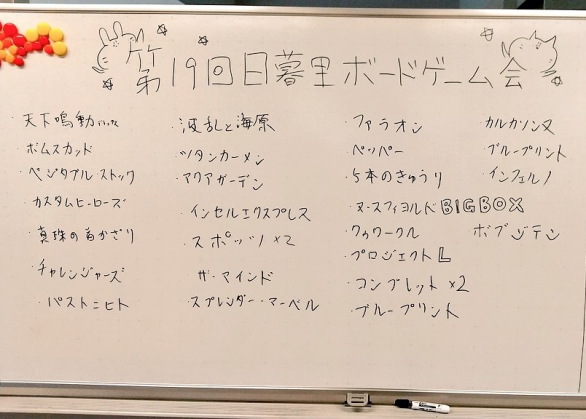 第19回日暮里ボードゲーム会
・天下鳴動
・ボムスカッド
・ベジタブルストック
・カスタムヒーローズ
・真珠の首かざり
・チャレンジャーズ
・パストニヒト
・波乱と海原
・ツタンカーメン
・アクアガーデン
・インセルエクスプレス
・スポッツ ×2
・ザ・マインド
・スプレンダー・マーベル
・ファラオン
・ペッパー
・5本のきゅうり
・ヌースフィヨルド BIGBOX
・クゥワークル
・プロジェクトL
・コンプレット ×2
・ブループリント
カルカソンヌ
・ブループリント
・インフェルノ
ボブジテン